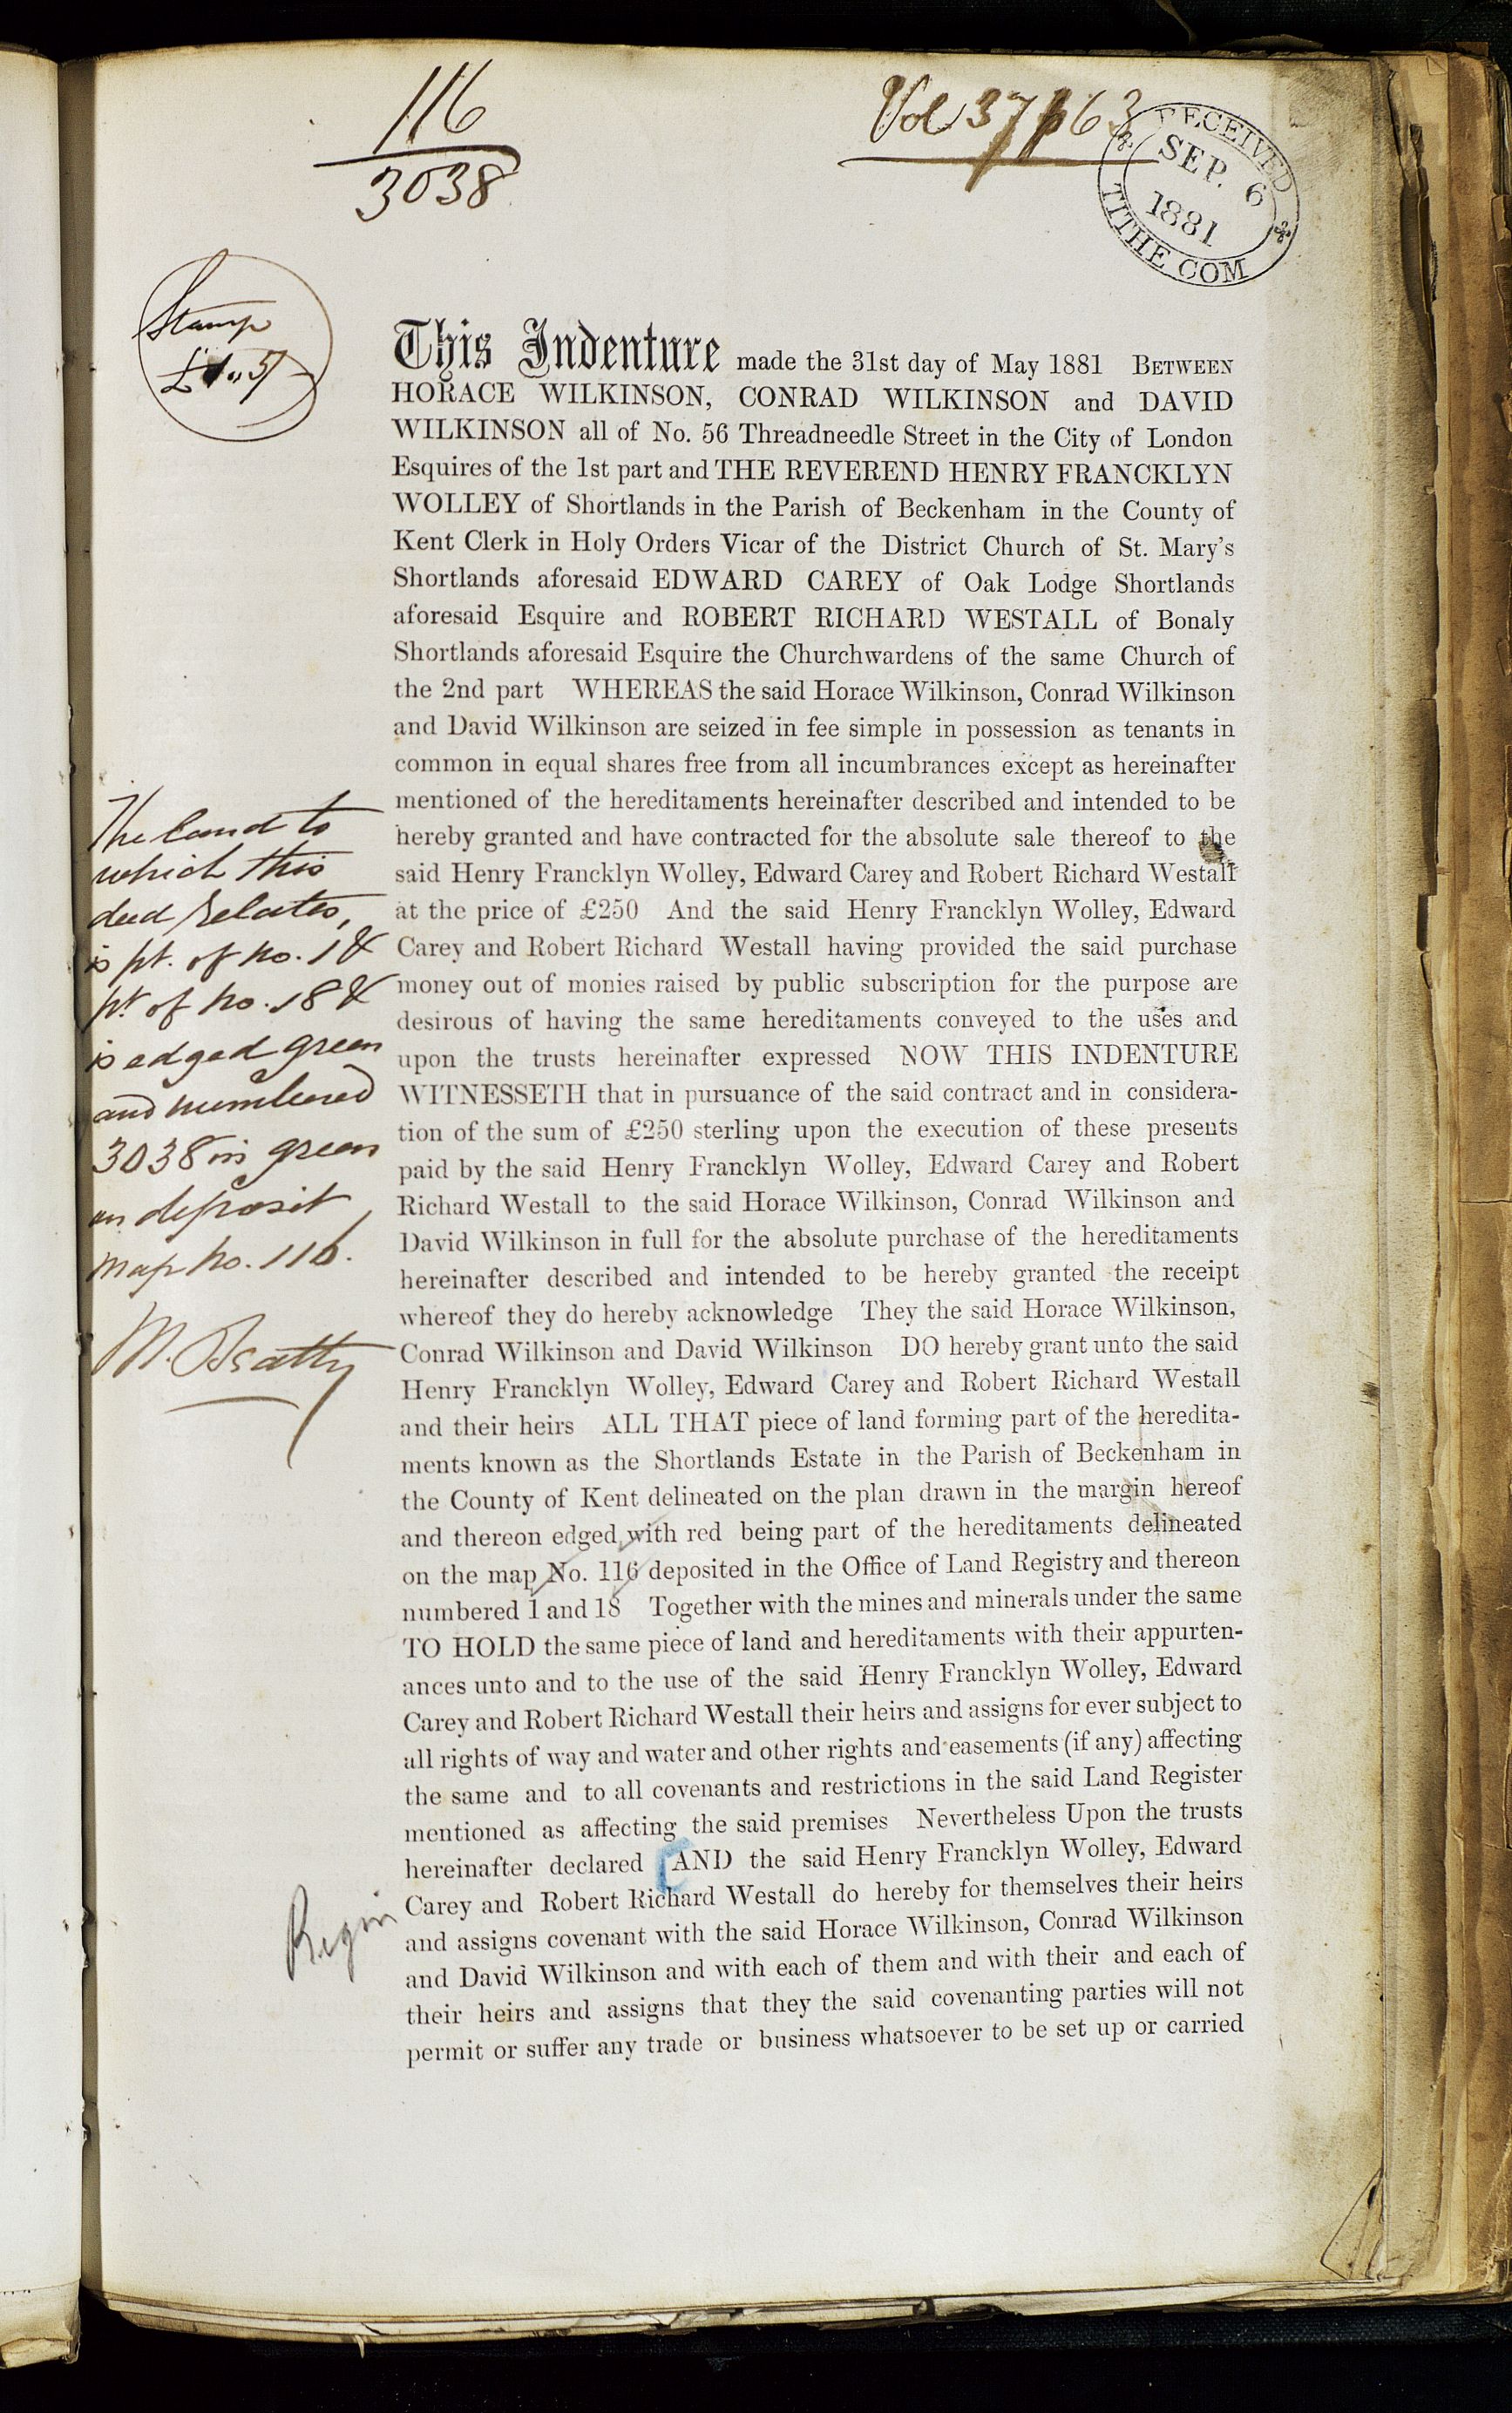 116
3038
Vol 37 p 63
RECEIVED
SEP. 6
1881
TITHE COM
Stamp
This Indenture made the 31st day of May 1881 BETWEEN
HORACE WILKINSON, CONRAD WILKINSON and DAVID
WILKINSON all of No. 56 Threadneedle Street in the City of London
Esquires of the 1st part and THE REVEREND HENRY FRANCKLYN
WOLLEY of Shortlands in the Parish of Beckenham in the County of
Kent Clerk in Holy Orders Vicar of the District Church of St. Mary's
Shortlands aforesaid EDWARD CAREY of Oak Lodge Shortlands
aforesaid Esquire and ROBERT RICHARD WESTALL of Bonaly
Shortlands aforesaid Esquire the Churchwardens of the same Church of
the 2nd part WHEREAS the said Horace Wilkinson, Conrad Wilkinson
and David Wilkinson are seized in fee simple in possession as tenants in
common in equal shares free from all incumbrances except as hereinafter
mentioned of the hereditaments hereinafter described and intended to be
hereby granted and have contracted for the absolute sale thereof to the
said Henry Francklyn Wolley, Edward Carey and Robert Richard Westall
at the price of £250 And the said Henry Francklyn Wolley, Edward
Carey and Robert Richard Westall having provided the said purchase
money out of monies raised by public subscription for the purpose are
desirous of having the same hereditaments conveyed to the uses and
upon the trusts hereinafter expressed NOW THIS INDENTURE
WITNESSETH that in pursuance of the said contract and in considera-
tion of the sum of £250 sterling upon the execution of these presents
paid by the said Henry Francklyn Wolley, Edward Carey and Robert
Richard Westall to the said Horace Wilkinson, Conrad Wilkinson and
David Wilkinson in full for the absolute purchase of the hereditaments
hereinafter described and intended to be hereby granted the receipt
whereof they do hereby acknowledge They the said Horace Wilkinson,
Conrad Wilkinson and David Wilkinson DO hereby grant unto the said
Henry Francklyn Wolley, Edward Carey and Robert Richard Westall
and their heirs ALL THAT piece of land forming part of the heredita-
ments known as the Shortlands Estate in the Parish of Beckenham in
the County of Kent delineated on the plan drawn in the margin hereof
and thereon edged with red being part of the hereditaments delineated
on the map No. 116 deposited in the Office of Land Registry and thereon
numbered 1 and 18 Together with the mines and minerals under the same
TO HOLD the same piece of land and hereditaments with their appurten-
ances unto and to the use of the said Henry Francklyn Wolley, Edward
Carey and Robert Richard Westall their heirs and assigns for ever subject to
all rights of way and water and other rights and easements (if any) affecting
the same and to all covenants and restrictions in the said Land Register
mentioned as affecting the said premises Nevertheless Upon the trusts
hereinafter declared [AND the said Henry Francklyn Wolley, Edward
Carey and Robert Richard Westall do hereby for themselves their heirs
and assigns covenant with the said Horace Wilkinson, Conrad Wilkinson
and David Wilkinson and with each of them and with their and each of
their heirs and assigns that they the said covenanting parties will not
permit or suffer any trade or business whatsoever to be set up or carried
The land to
which this
deed relates,
is pt. of no. 1 &
pt. of no. 18 &
is edged green
and numbered
3038 in green
on deposit
map no. 116.
M. Beatty